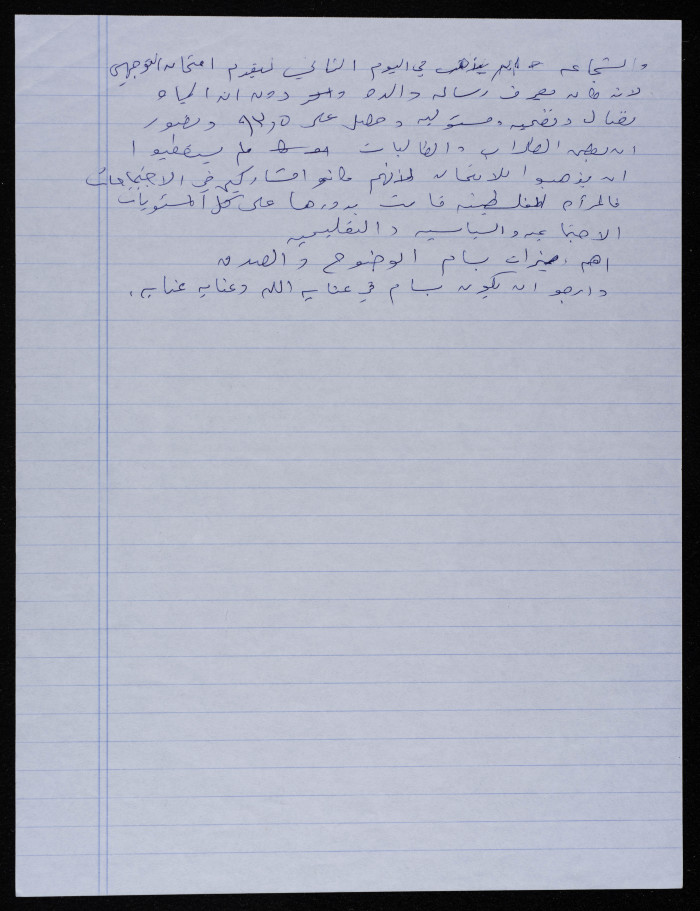 والشجاعه في اليوم الثاني ليقدم امتحان التوجيهي
لانه كان يعرف رسالة والده دون ان الحياه
نضال وتضحيه ومسئوليه وحصل على ٩٣٫٥ وتصور
ان بعض الطلاب والطالبات لم يستطيعوا
ان يذهبوا للامتحان لانهم كانو امشاركين في الاجتماعات
فالمرأه الفلسطينيه قامت بدورها على كل المستويات
الاجتماعيه والسياسيه والتعليميه
اهم ميزات بسام الوضوح والصدق
وارجو ان يكون بسام في عنايه الله وعنايه عنايه.